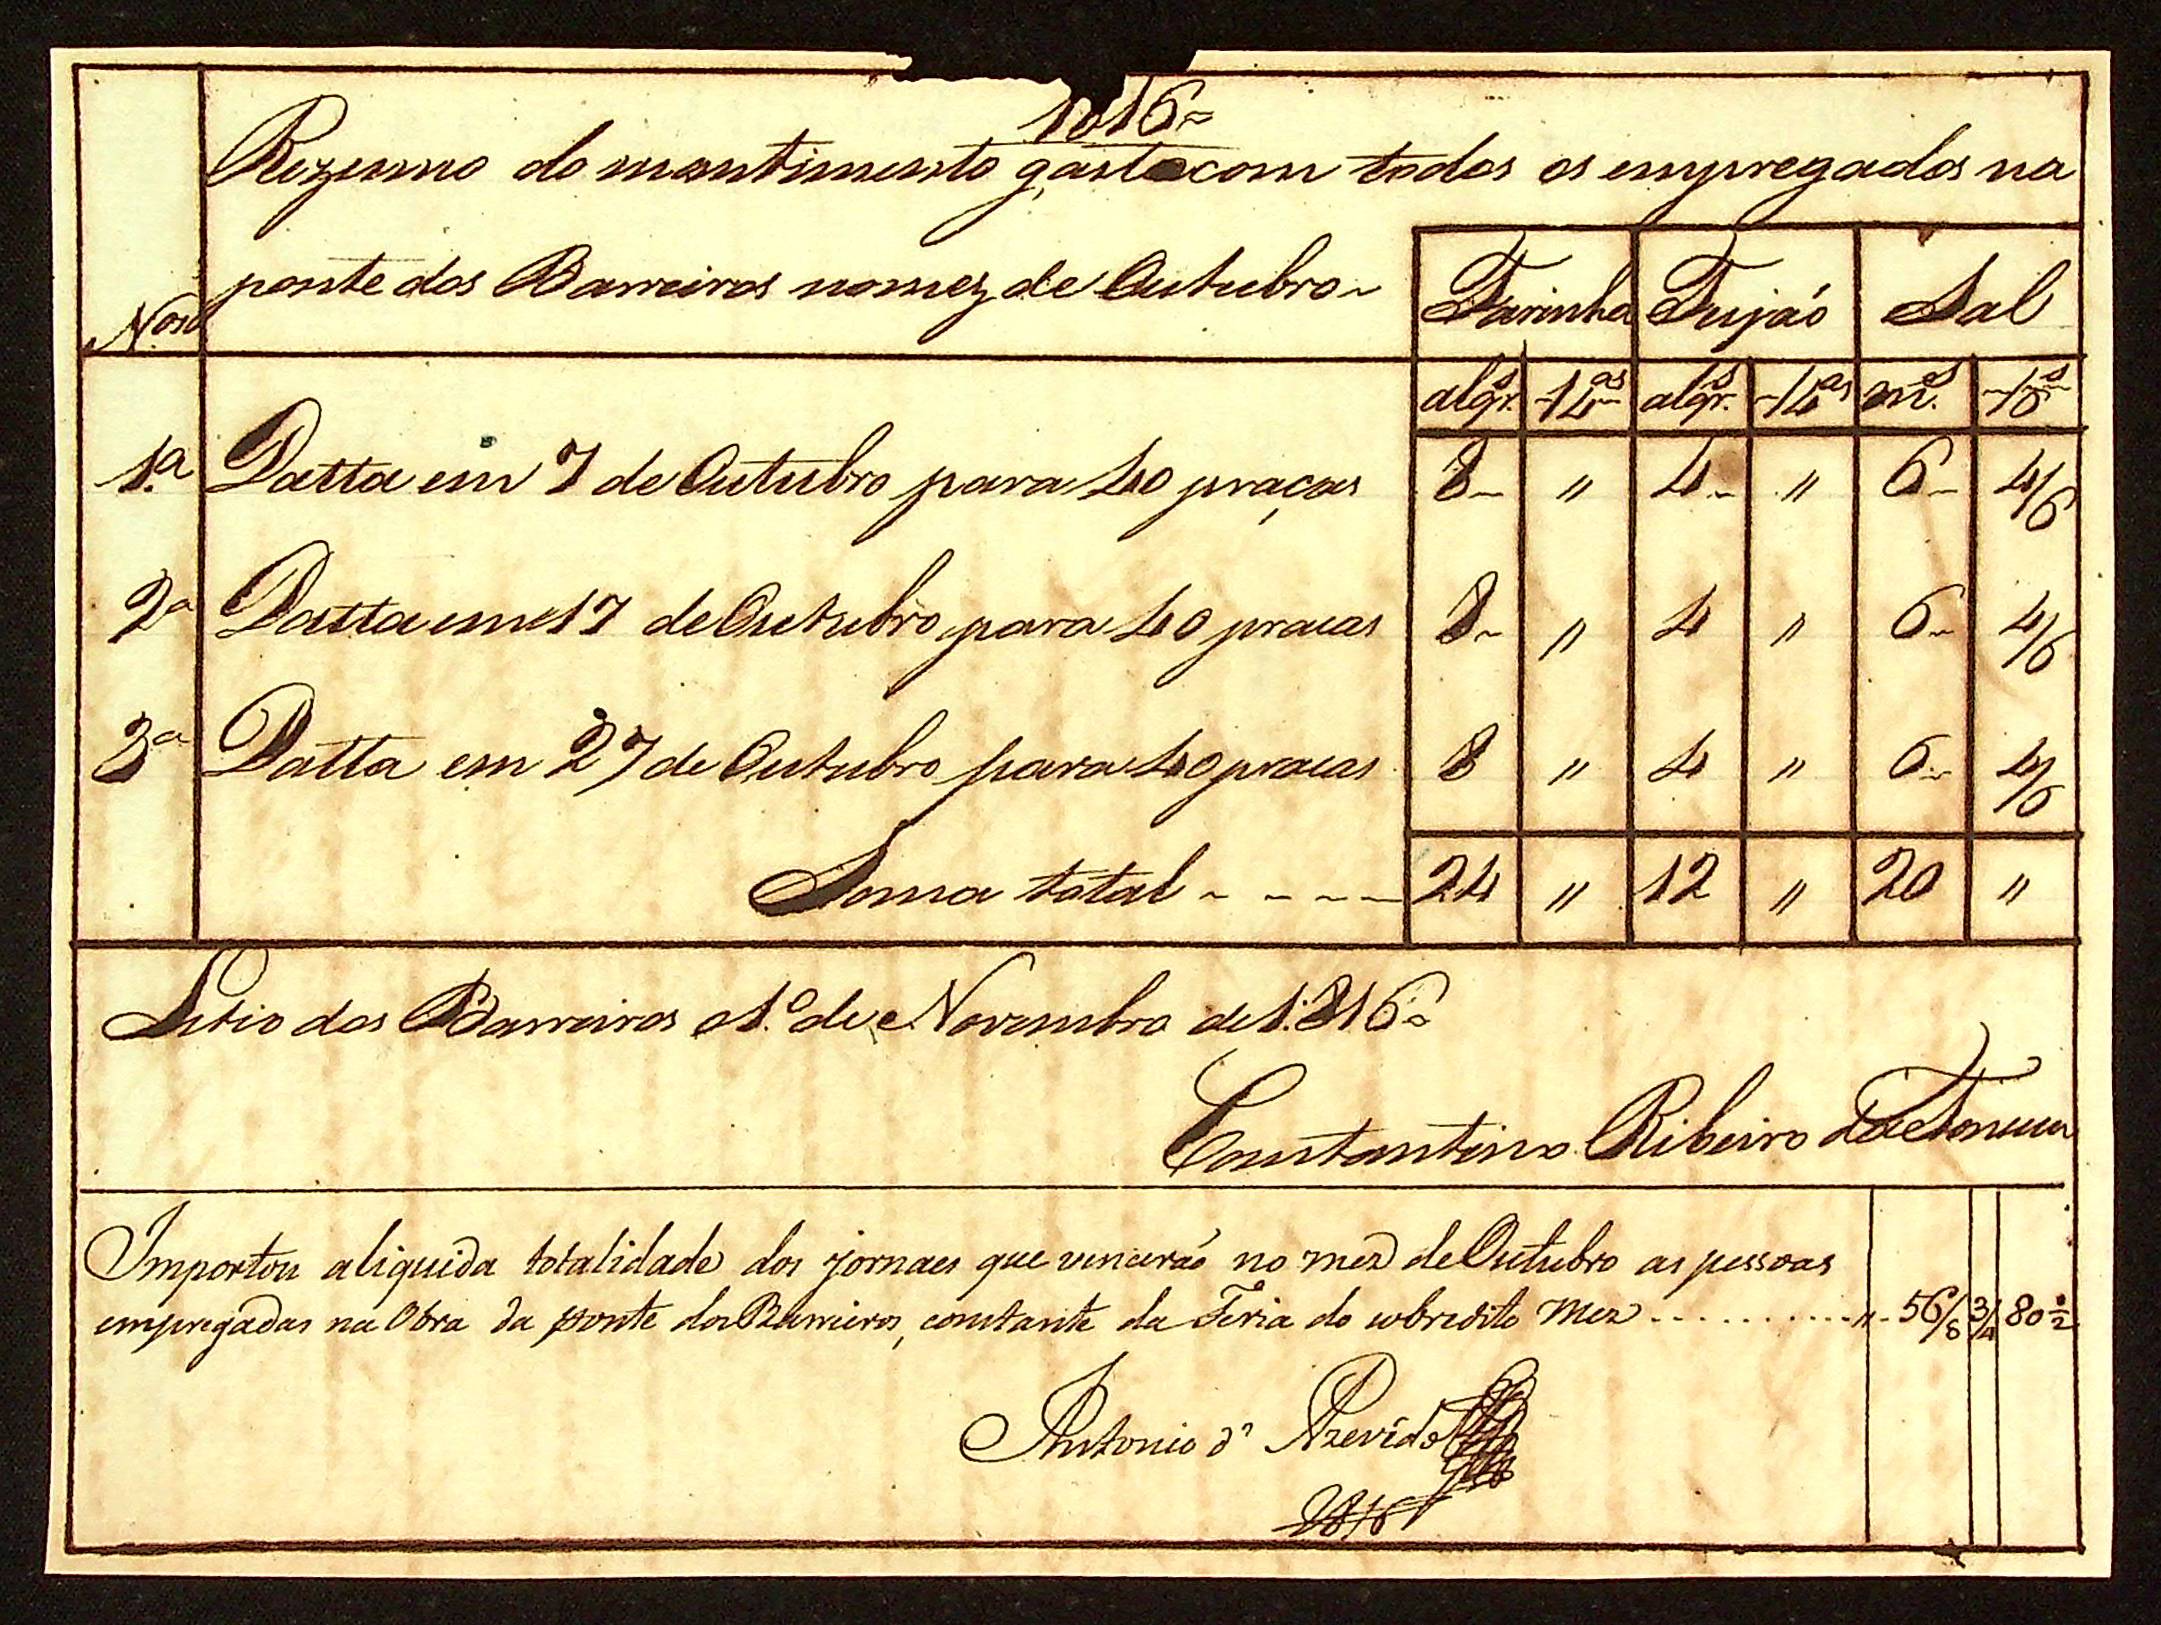 1816
Rezumo do mantimento gasto com todos os empregados na
ponte dos Barreiros no mez de Outubro
N.os
Farinha Feijão Sal
alqr.s 14.as alqr.s 14.as m.es 10.s
1.a Datta em 7 de Outubro para 40 praças 8 " 4 " 6 4/6
2a Datta em 17 de Outubro para 40 pracas 8 " 4 " 6 4/6
3a Datta em 27 de Outubro para 40 pracas 8 " 4 " 6 4/6
Soma total - - - - 24 " 12 " 20 "
Sitio dos Barreiros 1.o de Novembro de 1:816
Constantino Ribeiro da
Importou a liquida totalidade dos jornaes que vencerão no mez de Outubro as pessoas
empregadas na Obra da ponte dos Barreiros, constante da Feria do sobredito Mez . . . . . . . . . . " 56/8 3/4 80 ½
Antonio d' Azevedo